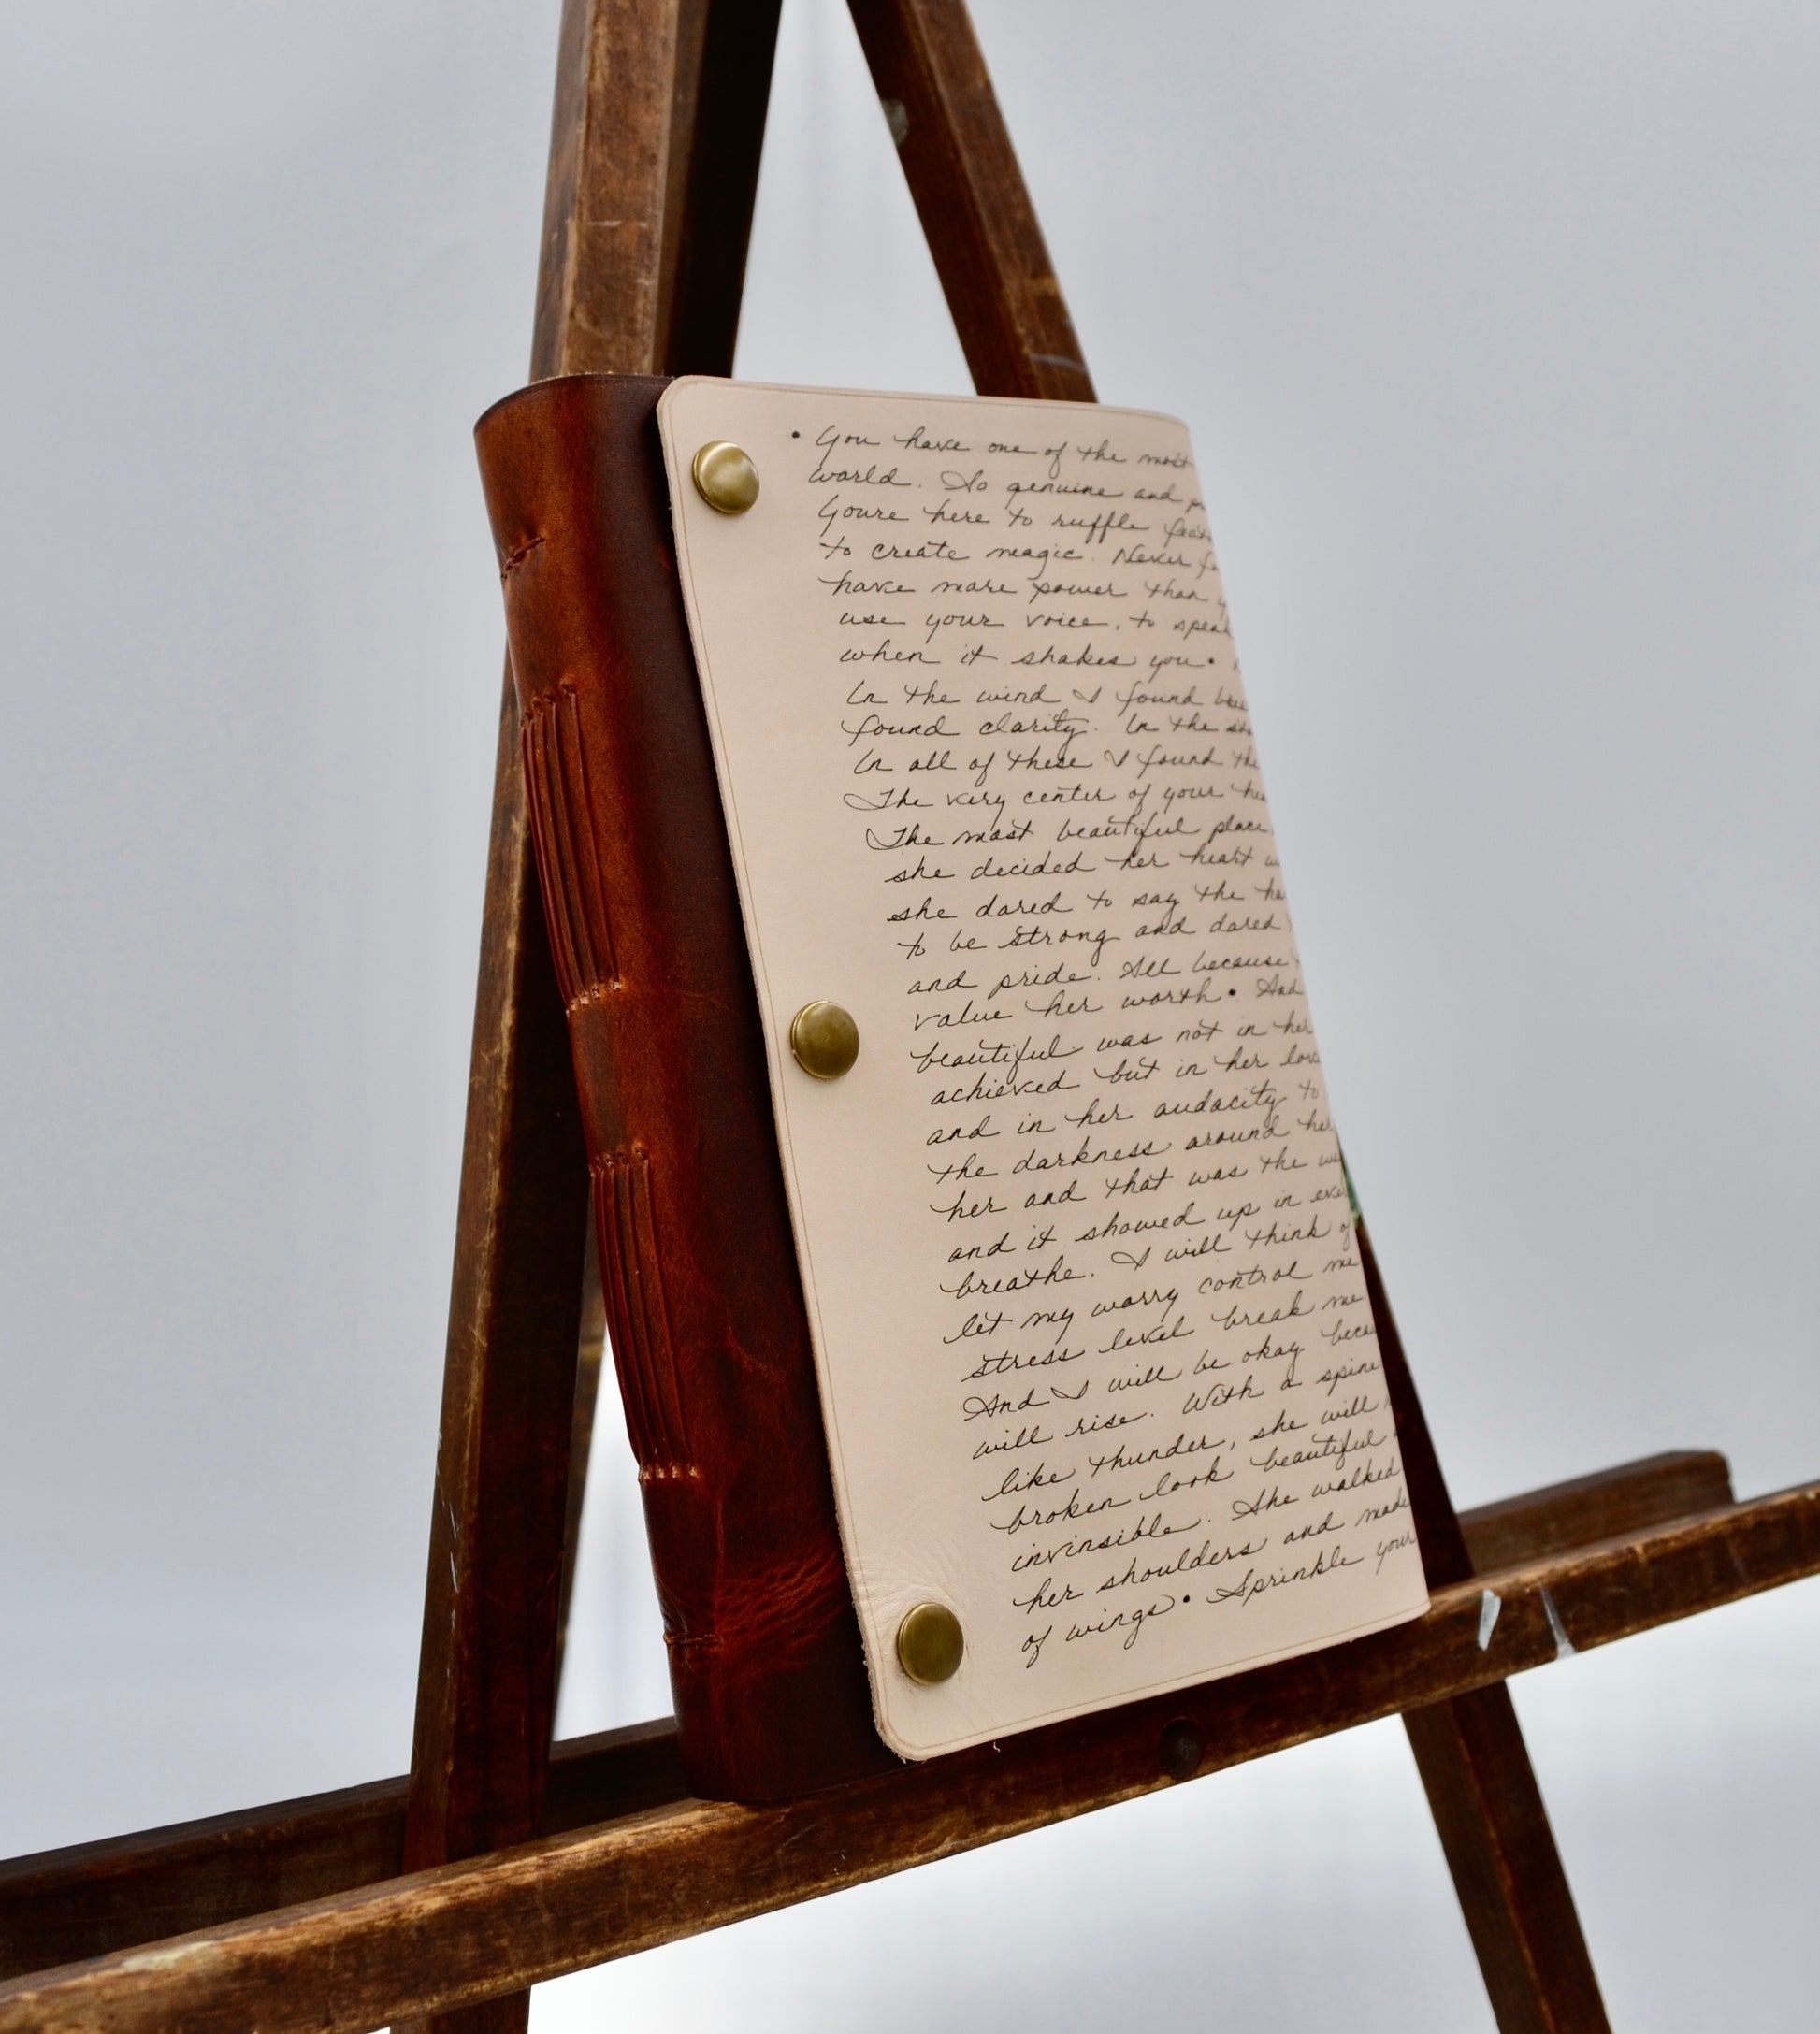 • You have one of the most
world. So genuine and
Youre here to ruffle
to create magic. Never
have more power than
use your voice, to speak
when it shakes you •
In the wind I found
found clarity. In the
In all of these I found the
The very center of your
The most beautiful place
she decided her heart
she dared to say the
to be strong and dared
and pride. All because
value her worth • And
beautiful was not in her
achieved but in her
and in her audacity to
the darkness around her
her and that was the
and it showed up in
breathe. I will think
let my worry control me
stress level break me
And I will be okay
will rise. With a spine
like thunder, she will
broken look beautiful
invinsible. She walked
her shoulders and made
of wings • Sprinkle your